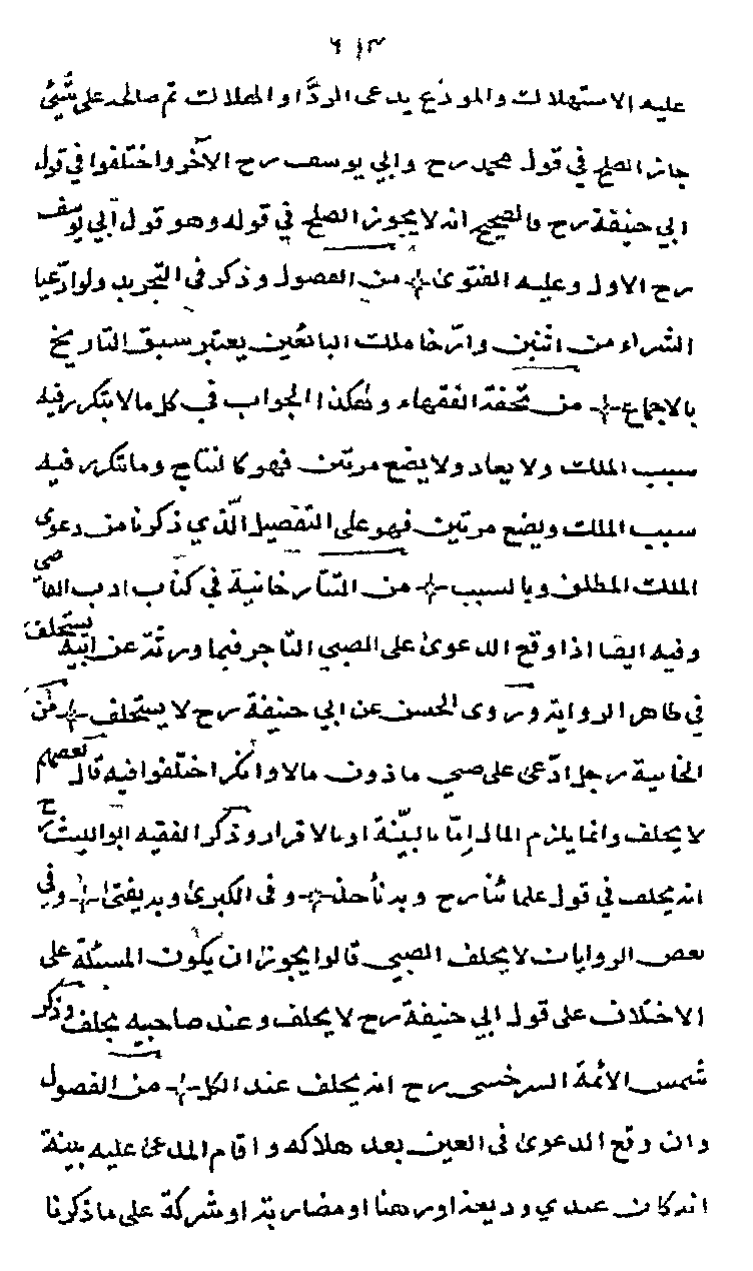 ٦١٣
عليه الاستهلاك والمودع يدعى الردّ او الهلاك ثم صالحه على شئ
جاز الصلح في قول محمد رح وابي يوسف رح الآخر واختلفوا في قول
ابي حنيفة رح والصحيح انه لا يجوز الصلح في قوله وهو قول ابي يوسف
رح الاول وعليه الفتوى من الفصول وذكر في التجريد ولو ادّعيا
الشراء من اثنين وارّخا ملك البائعين يعتبر سبق التاريخ
بالاجماع من تحفة الفقهاء وهكذا الجواب في كل ما لا يتكرر فيه
سبب الملك ولا يعاد ولا يضع مرتين فهو كالنتاج وما تكرر فيه
سبب الملك ويضع مرتين فهو على التفصيل الّذي ذكرنا من دعوى
الملك المطلق وبالسبب من التتارخانية في كتاب ادب القاضى
وفيه ايضا اذا وقع الدعوى على الصبي التاجر فيما ورثه عن ابيه يستحلف
في ظاهر الرواية وروى الحسن عن ابي حنيفة رح لا يستحلف من
الخانية رجل ادّعى على صبي ماذون مالا وانكر اختلفوا فيه قال بعضهم
لا يحلف وانما يلزم المال امّا بالبيّنة او بالاقرار وذكر الفقيه ابو الليث رح
انه يحلف في قول علمائنا رح وبه نأخذ وفي الكبرى وبه يفتى وفي
بعض الروايات لا يحلف الصبي قالوا يجوز ان يكون المسئلة على
الاختلاف على قول ابي حنيفة رح لا يحلف وعند صاحبيه يحلف وذكر
شمس الائمة السرخسي رح انه يحلف عند الكل من الفصول
وان وقع الدعوى في العين بعد هلاكه واقام المدعى عليه بينة
انه كان عندي وديعة او رهنا او مضاربة او شركة على ما ذكرنا